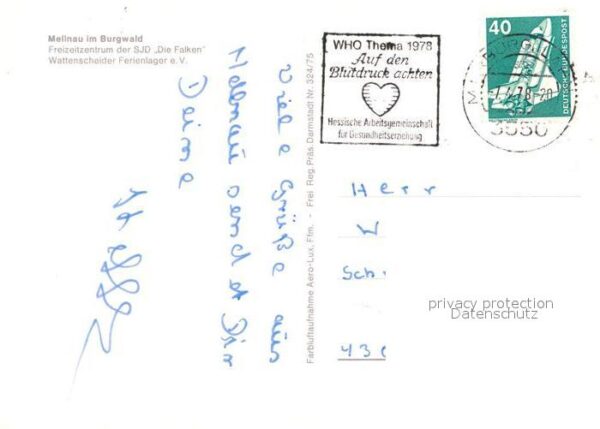 Mellnau im Burgwald
Freizeitzentrum der SJD „Die Falken"
Wattenscheider Ferienlager e.V.
WHO Thema 1978
Auf den
Blutdruck achten
Hessische Arbeitsgemeinschaft
für Gesundheitserziehung
40
DEUTSCHE BUNDESPOST
3550
Farbluftaufnahme Aero-Lux, Ffm. - Frei Reg. Präs. Darmstadt Nr. 324/75
viele Grüße aus
Mellnau sendet Dir
Deine
Herr
W
Sch.
43
privacy protection
Datenschutz